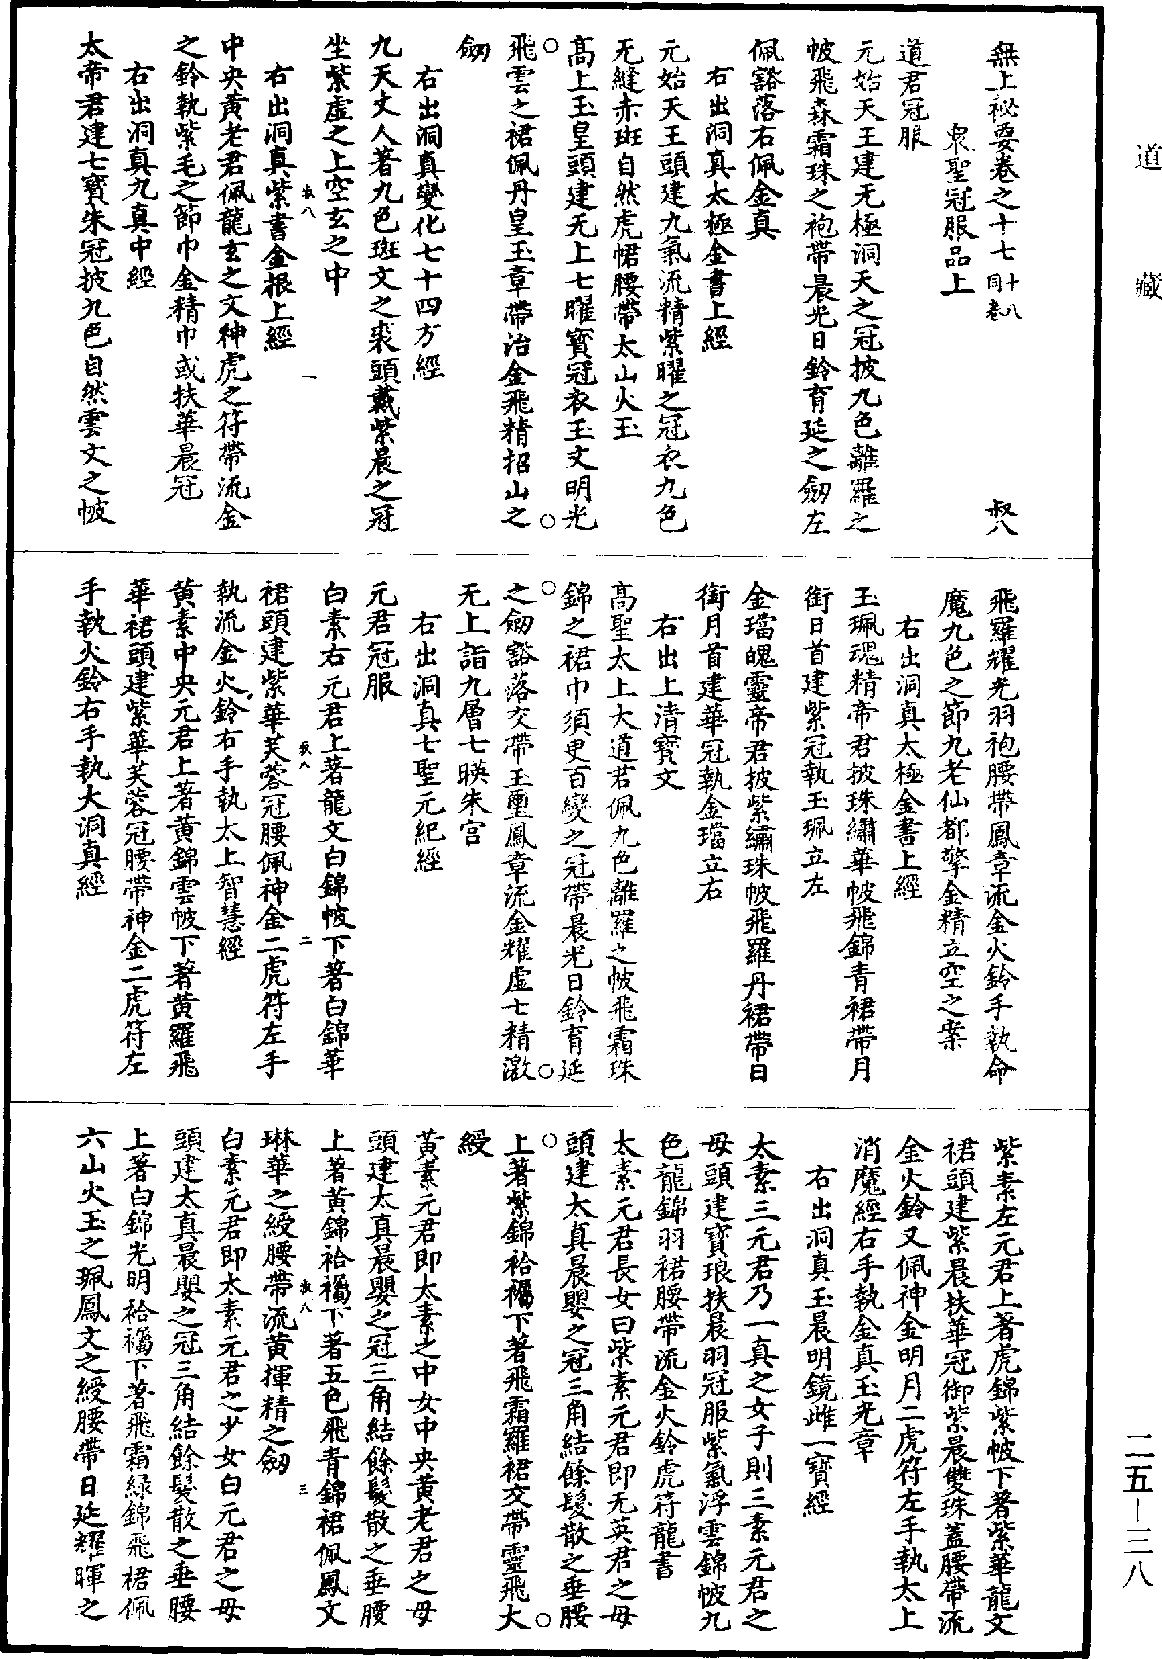 道藏
無上祕要卷之十七 十八同卷 叔八
衆聖冠服品上
道君冠服
元始天王建无極洞天之冠披九色離羅之
帔飛森霜珠之袍帶晨光日鈴育延之劒左
佩豁落右佩金真
右出洞真太極金書上經
元始天王頭建九氣流精紫曜之冠衣九色
无縫赤斑自然虎帬腰帶太山火玉
高上玉皇頭建无上七曜寳冠衣玉文明光
飛雲之裙佩丹皇玉章帶治金飛精招山之
劒
右出洞真變化七十四方經
九天丈人著九色斑文之裘頭戴紫晨之冠
坐紫虛之上空玄之中
右出洞真紫書金根上經
中央黃老君佩龍玄之文神虎之符帶流金
之鈴執紫毛之節巾金精巾或扶華晨冠
右出洞真九真中經
太帝君建七寳朱冠披九色自然雲文之帔
叔八 一
飛羅耀光羽袍腰帶鳳章流金火鈴手執命
魔九色之節九老仙都擎金精立空之案
右出洞真太極金書上經
玉珮瑰精帝君披珠繡華帔飛錦青裙帶月
銜日首建紫冠執玉珮立左
金璫魄靈帝君披紫繡珠帔飛羅丹裙帶日
銜月首建華冠執金璫立右
右出上清寳文
高聖太上大道君佩九色離羅之帔飛霜珠
錦之裙巾須臾百變之冠帶晨光日鈴育延
之劒豁落交帶玉璽鳳章流金耀虛七精激
无上詣九層七暎朱宫
右出洞真七聖元紀經
元君冠服
白素右元君上著龍文白錦帔下著白錦華
裙頭建紫華芙蓉冠腰佩神金二虎符左手
執流金火鈴右手執太上智慧經
黃素中央元君上著黃錦雲帔下著黃羅飛
華裙頭建紫華芙蓉冠腰帶神金二虎符左
手執火鈴右手執大洞真經
叔八 二
紫素左元君上著虎錦紫帔下著紫華龍文
裙頭建紫晨扶華冠御紫晨雙珠蓋腰帶流
金火鈴又佩神金明月二虎符左手執太上
消魔經右手執金真玉光章
右出洞真玉晨明鏡雌一寳經
太素三元君乃一真之女子則三素元君之
母頭建寳琅扶晨羽冠服紫氣浮雲錦帔九
色龍錦羽裙腰帶流金火鈴虎符龍書
太素元君長女曰紫素元君即无英君之母
頭建太真晨嬰之冠三角結餘髮散之垂腰
上著紫錦袷襡下著飛霜羅裙交帶靈飛大
綬
黃素元君即太素之中女中央黃老君之母
頭建太真晨嬰之冠三角結餘髮散之垂腰
上著黃錦袷襡下著五色飛青錦裙佩鳳文
琳華之綬腰帶流黃揮精之劒
白素元君即太素元君之少女白元君之母
頭建太真晨嬰之冠三角結餘髮散之垂腰
上著白錦光明袷襡下著飛霜緑錦飛裙佩
六山火玉之珮鳳文之綬腰帶日延耀暉之
叔八 三
二五－三八